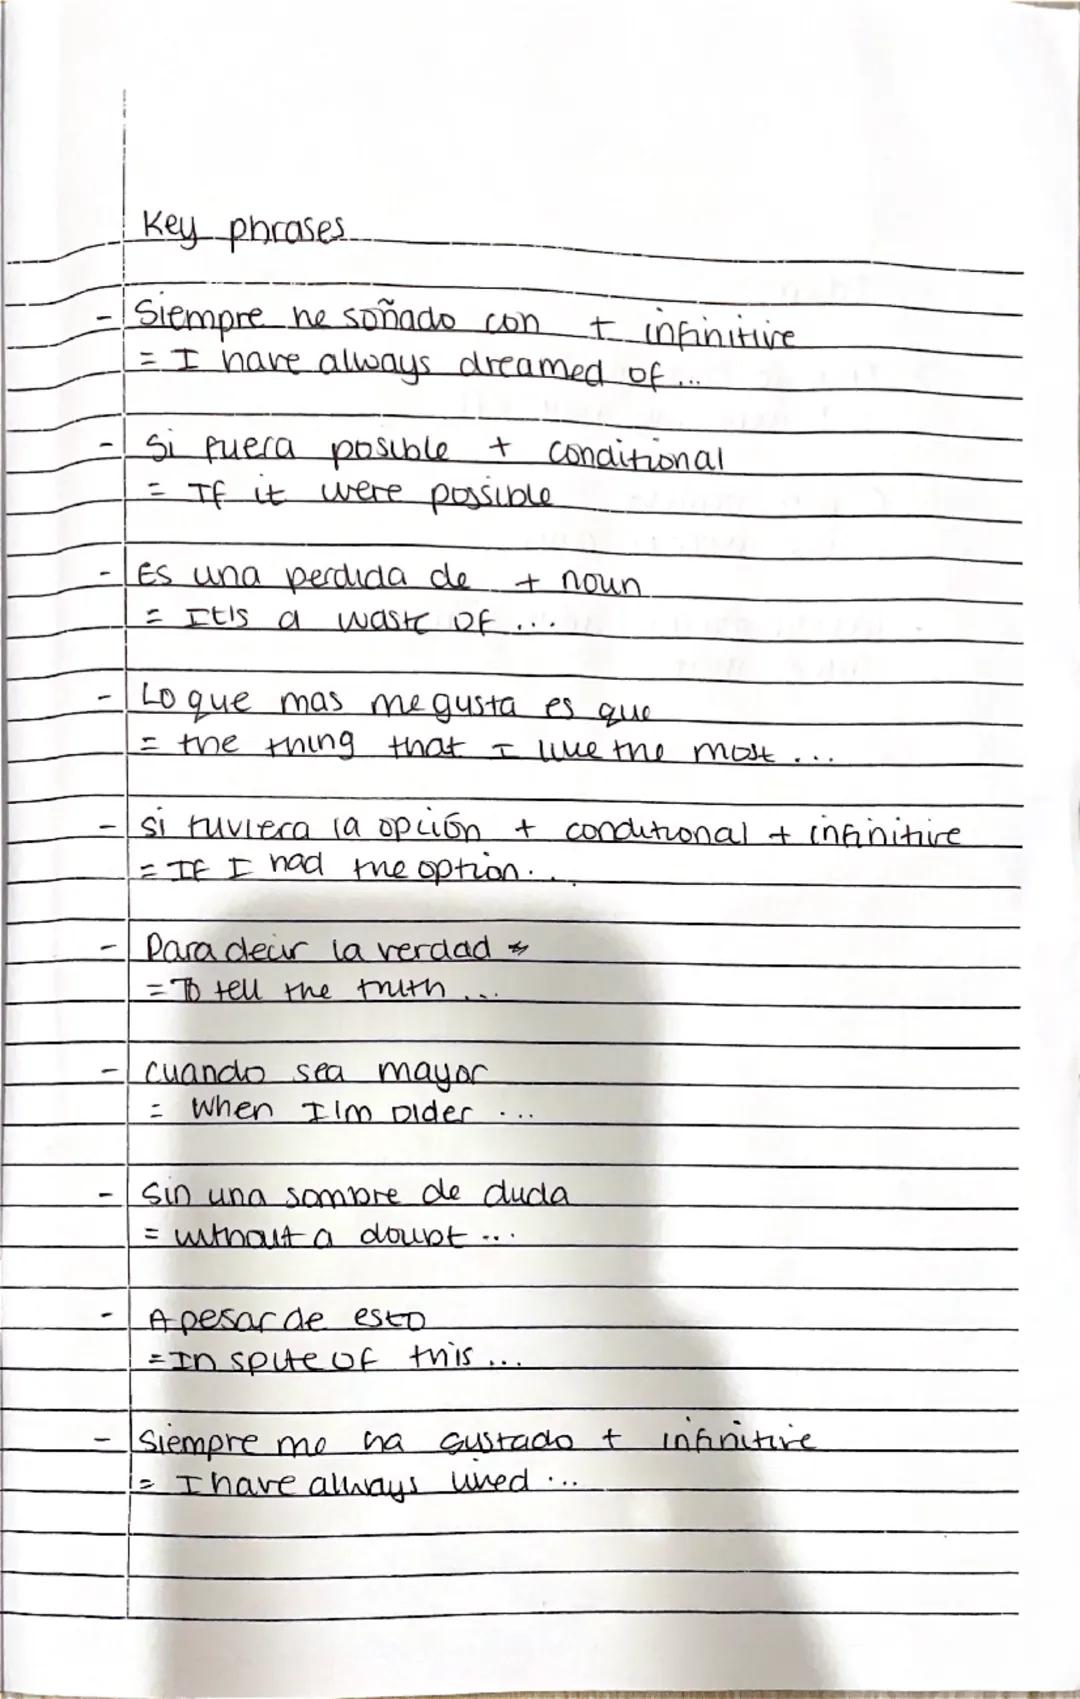 Key phrases
- Siempre he soñado con + infinitive
= I have always dreamed of...
- Si fuera posible + conditional
= If it were possible
- Es una perdida de + noun
= It's a waste of ...
- Lo que mas me gusta es que
= the thing that I like the most ...
- si tuviera la opción + conditional + infinitive
= If I had the option...
- Para decir la verdad
= To tell the truth ...
- cuando sea mayor
= When I'm older ...
- Sin una sombre de duda
= without a doubt ...
- A pesar de esto
= In spite of this ...
- Siempre me ha gustado + infinitive
= I have always liked ...